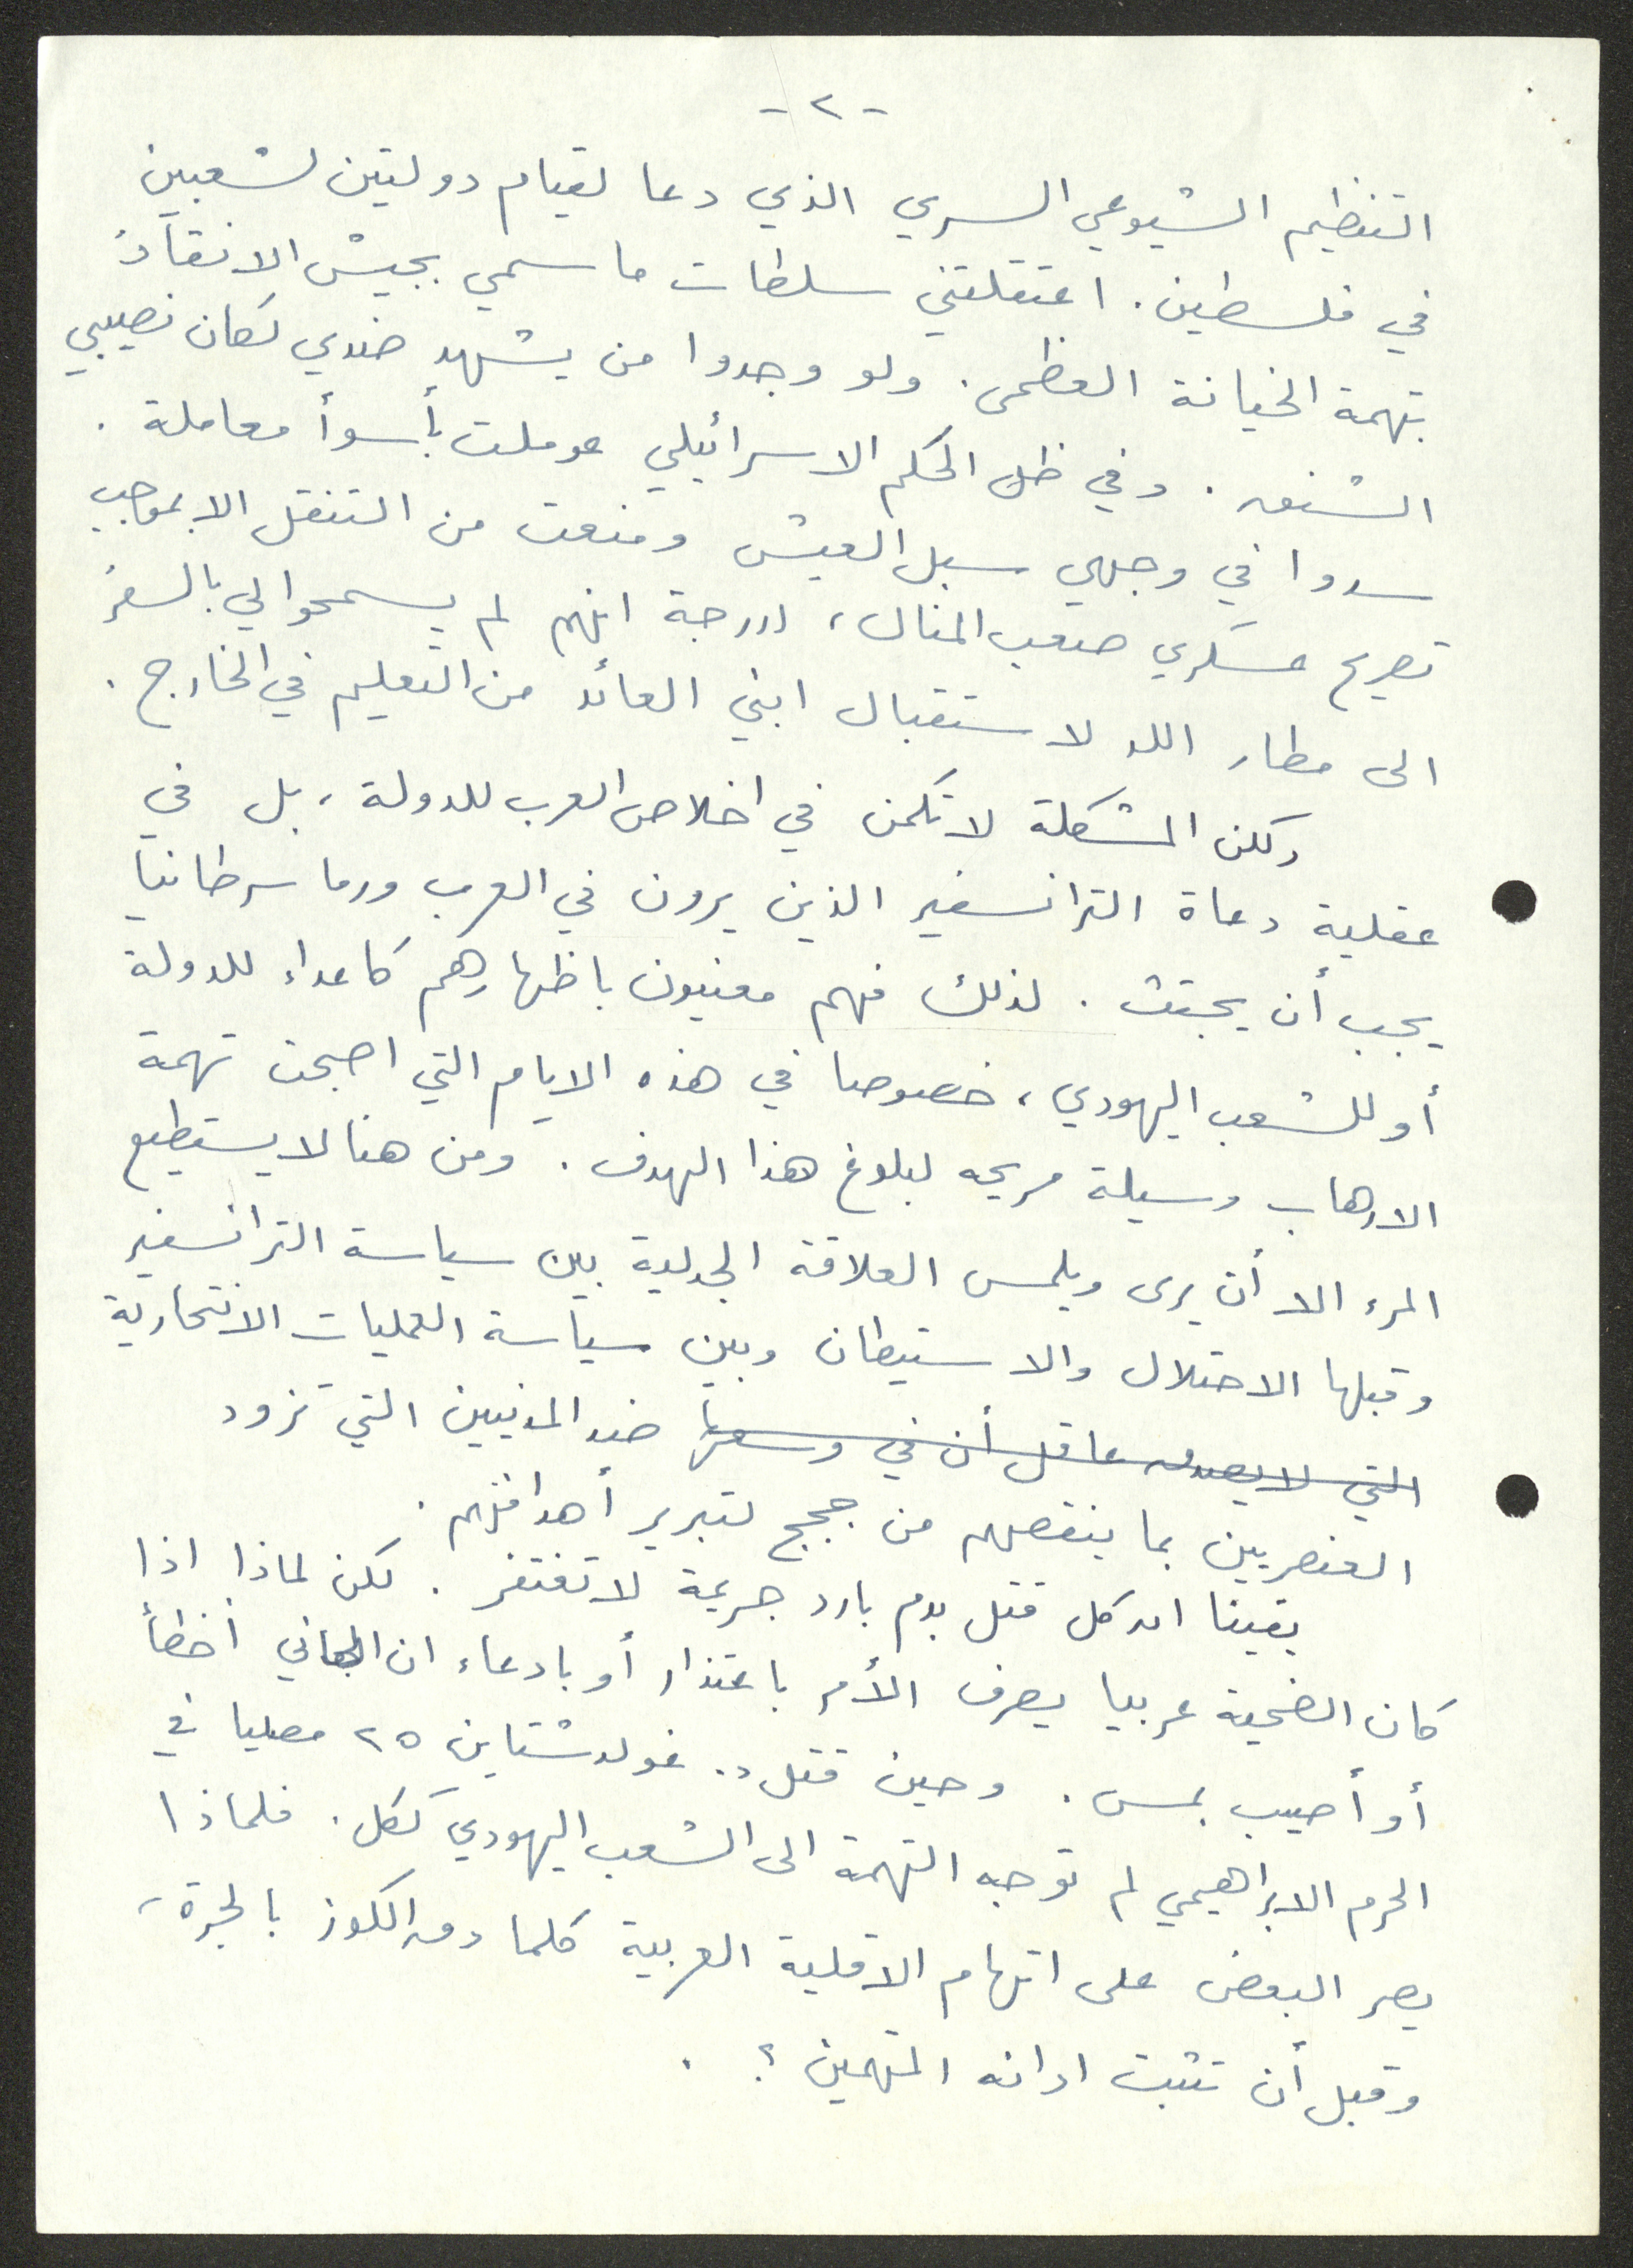 -٢-
التنظيم الشيوعي السري الذي دعا لقيام دولتين لشعبين
في فلسطين. اعتقلتني سلطات ما سمي بجيش الانقاذ
بتهمة الخيانة العظمى. ولو وجدوا من يشهد ضدي لكان نصيبي
الشنق. وفي ظل الحكم الاسرائيلي عوملت بأسوأ معاملة.
سدوا في وجهي سبل العيش ومنعت من التنقل الا بموجب
تصريح عسكري صعب المنال، لدرجة انهم لم يسمحوا لي بالسفر
الى مطار اللد لاستقبال ابني العائد من التعليم في الخارج.
ولكن المشكلة لا تكمن في اخلاص العرب للدولة، بل في
عقلية دعاة الترانسفير الذين يرون في العرب ورما سرطانيا
يجب أن يجتث. لذلك فهم معنيون باظهارهم كاعداء للدولة
أو للشعب اليهودي، خصوصا في هذه الايام التي اصبحت تهمة
الارهاب وسيلة مريحه لبلوغ هذا الهدف. ومن هنا لا يستطيع
المرء الا أن يرى ويلمس العلاقة الجدلية بين سياسة الترانسفير
وقبلها الاحتلال والاستيطان وبين سياسة العمليات الانتحارية
التي لا يصدق عاقل أن في وسعها ضد المدنيين التي تزود
العنصريين بما ينقصهم من حجج لتبرير أهدافهم.
يقينا ان كل قتل بدم بارد جريمة لا تغتفر. لكن لماذا اذا
كان الضحية عربيا يصرف الأمر باعتذار أو بادعاء ان الجاني أخطأ
أو أصيب بمس. وحين قتل د. غولدشتاين ٢٥ مصليا في
الحرم الابراهيمي لم توجه التهمة الى الشعب اليهودي ككل. فلماذا
يصر البعض على اتهام الاقلية العربية كلما دق الكوز بالجرة،
وقبل أن تثبت ادانه المتهمين؟.